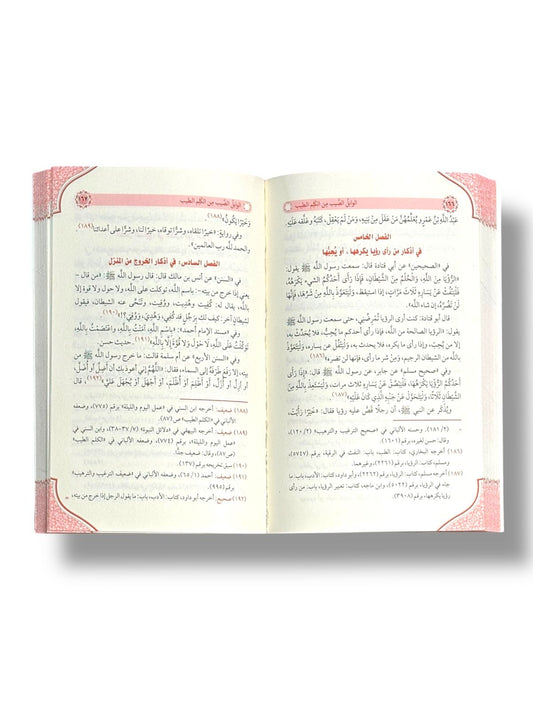 ١٦٦
الوابل الصيب من الكلم الطيب
عبد الله بن عمرو يُعَلِّمُهُنَّ مَنْ عَقَلَ مِنْ بَنِيهِ، وَمَنْ لَمْ يَعْقِلْ، كَتَبَهُ وعَلَّقه عَلَيْهِ.
الفصل الخامس
في أذكار من رأى رؤيا يكرهها، أو يُحِبُّها
في «الصحيحين» عن أبي قتادة قال: سمعت رسول الله ﷺ يقول:
«الرُّؤْيَا مِنَ اللَّهِ، وَالْحُلْمُ مِنَ الشَّيْطَانِ، فَإِذَا رَأَى أَحَدُكُمُ الشيء يَكْرَهُهُ،
فَلْيَنْفُثْ عَنْ يَسَارِهِ ثَلَاثَ مَرَّاتٍ، إِذَا استيقظ، وَلْيَتَعَوَّذْ بِاللَّهِ مِنْ شَرِّهَا، فَإِنَّهَا
لَنْ تَضُرَّهُ، إن شاء الله».
قال أبو قتادة: كنت أرى الرؤيا تُمْرِضُنِي، حتى سمعت رسول الله ﷺ
يقول: «الرؤيا الصالحة من الله، فإذا رأى أحدكم ما يحِبُّ، فلا يُحَدِّث به
إلا من يُحِبُّ، وإذا رأى ما يكره، فلا يحدث به، وليَتْفُل عن يساره، وليَتَعَوَّذ
بالله من الشيطان الرجيم، ومن شر ما رأى، فإنها لن تضره»(١٨٦).
وفي «صحيح مسلم» عن جابر، عن رسول الله ﷺ قال: «إِذَا رَأَى
أَحَدُكُمُ الرُّؤْيَا يَكْرَهُهَا، فَلْيَبْصُقْ عَنْ يَسَارِهِ ثلاث مرات، وَلْيَسْتَعِذْ بِاللَّهِ مِنَ
الشَّيْطَانِ ثَلَاثًا، وَلْيَتَحَوَّلْ عَنْ جَنْبِهِ الَّذِي كَانَ عَلَيْهِ»(١٨٧).
ويُذْكَر عن النبي ﷺ أن رجلًا قَصَّ عليه رؤيا فقال: «خيرًا رأيتَ،
= (٢/ ١٨١)، وحسنه الألباني في «صحيح الترغيب والترهيب» (٢/ ١٢٠)
وقال: حسن لغيره، برقم (١٦٠١).
(١٨٦) أخرجه البخاري، كتاب: الطب، باب: النفث في الرقية، برقم (٥٧٤٧)
ومسلم، كتاب: الرؤيا، برقم (٢٢٦١)، وغيرهما.
(١٨٧) أخرجه مسلم، كتاب: الرؤيا، برقم (٢٢٦٢)، وأبو داود، كتاب: الأدب، باب: ما
جاء في الرؤيا، برقم (٥٠٢٢)، وابن ماجه، كتاب: تعبير الرؤيا، باب: من رأى
رؤيا يكرهها، برقم (٣٩٠٨).
الوابل الصيب من الكلم الطيب
١٦٧
وَخَيْرًا يَكُونُ»(١٨٨).
وفي رواية: «خيرًا تلقاه، وشرًّا توقاه، خيرًا لنا، وشرًّا على أعدائنا،
والحمد لله رب العالمين»(١٨٩).
الفصل السادس: في أذكار الخروج من المنزل
في «السنن» عن أنس بن مالك قال: قال رسول الله ﷺ: «من قال -
يعني إذا خرج من بيته -: باسم الله، توكلت على الله، ولا حول ولا قوة إلا
بالله، يُقال له: كُفِيتَ، وهُدِيتَ، ووُقِيتَ، وتَنَحَّى عنه الشيطان، فيقول
لشيطان آخر: كيف لك برَجُلٍ قد كُفِي، وهُدِي، ووُقِي؟»(١٩٠).
وفي «مسند الإمام أحمد»: «بِاسْمِ اللَّهِ، آمَنْتُ بِاللَّهِ، اعْتَصَمْتُ بِاللَّهِ،
تَوَكَّلْتُ عَلَى اللَّهِ، لَا حَوْلَ وَلَا قُوَّةَ إِلَّا بِاللَّهِ»(١٩١). حديث حسن.
وفي «السنن الأربع» عن أم سلمة قالت: ما خرج رسول الله ﷺ من
بيته، إلا رَفَعَ طَرْفَهُ إلى السماء، فقال: «اللَّهُمَّ إِنِّي أعوذ بك أن أَضِلَّ أو أُضَلَّ،
أو أَزِلَّ أو أُزَلَّ، أو أَظْلِمَ، أو أُظْلَمَ، أو أَجْهَلَ أو يُجْهَلَ عَلَيَّ»(١٩٢).
(١٨٨) ضعيف: أخرجه ابن السني في «عمل اليوم والليلة» برقم (٧٧٥)، وضعفه
الألباني في «الكلم الطيب» ص(٨٧).
(١٨٩) ضعيف: أخرجه البيهقي في «دلائل النبوة» (٧/ ٣٦-٣٨)، وابن السني في
«عمل اليوم والليلة»، برقم (٧٧٤)، وضعفه الألباني في «الكلم الطيب»
ص(٨٧)، وقال: ضعيف جدًّا.
(١٩٠) سبق تخريجه برقم (١٣٧).
(١٩١) ضعيف: أخرجه أحمد (١/ ٦٥)، وضعفه الألباني في «ضعيف الترغيب والترهيب»
برقم (٩٩٥).
(١٩٢) صحيح: أخرجه أبو داود، كتاب: الأدب، باب: ما يقول الرجل إذا خرج من بيته، =